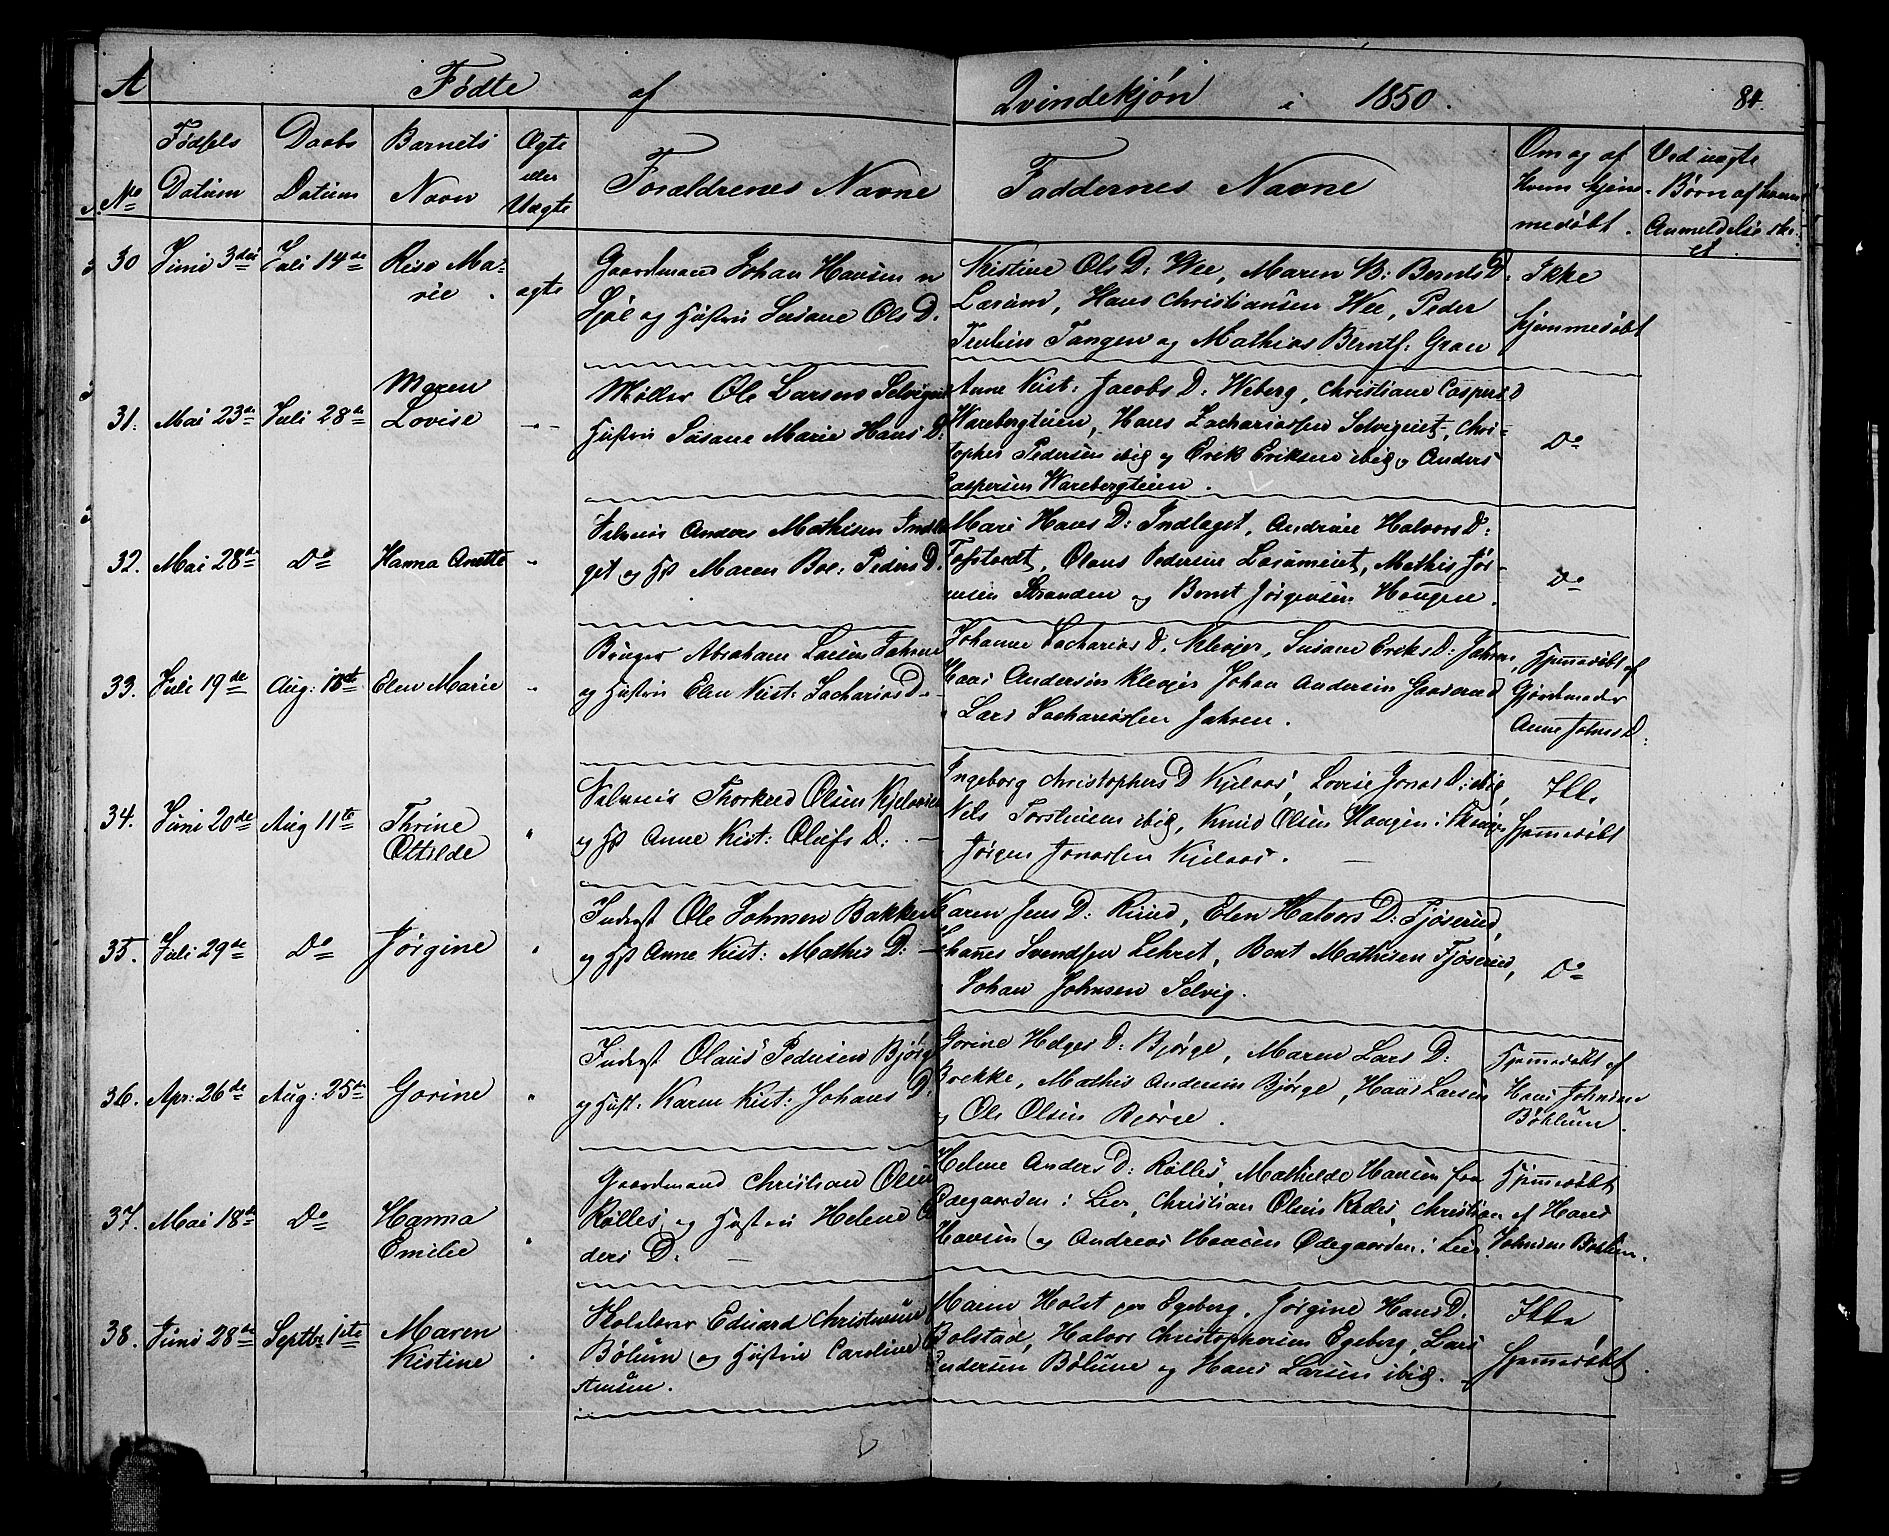 A Fødte af Qvindekjøn i 1850. 84.
No Fødsels Datum Daabs Datum Barnets Navn Ægte eller Uægte Forældrenes Navne Faddernes Navne Om og af hvem hjemmedøbt. Ved uægte Børn af hvem Anmeldelse skeet.
30 Juni 3die Juli 14de Marie. ægte
Gaardmand Johan Hansen
og Hustru Susane Ols D.
Kistine Ols D: Wee, Maren Bernts D:
Lærum, Hans Christiansen Wee, Peder
Tangen og Mathias Bernts: Gran
Ikke
hjemmedøbt
31. Mai 23de Juli 28de Maren
Lovise
Møller Ole Larsen
Hustru Susane Marie Hans D:
Anne Kist: Jacobs D: Weberg, Christiane Caspers D
Warebergteien, Hans Zachariassen Selvigeiet, Chri-
stopher Pedersen ibid og Erik Eriksen ibid og Anders
Caspersen Warebergteien.
Do
32. Mai 28de Do Hanna Anette
Anders Mathisen
get og Hst Maren Peders D.
Mari Hans D: Indlaget, Andrine Halvors D:
Tofstardt, Olaus Pedersen Mathis Jør-
gensen Stranden og Bernt Jørgensen Hougen.
Do
33. Juli 19de Aug: Elen Marie
Abraham Larsen Jahren
og Hustru Elen Kist: Zacharias D.
Johanne Zacharias D. Klevjer, Susane Eriks D: Jahren,
Hans Andersen Klevjer Johan Andersen
Lars Zachariassen Jahren.
Hjemmedøbt af
Gjordmoder
Anne Johns D:
34. Juni 20de Aug 11te Thrine
Ottilde
Olsen
og Hst Anne Kist: Olufs D:
Ingeborg Christophers D Kjelaas, Lovise Jonas D: ibid,
Nils ibid, Knud Olsen Hougen i
Jørgen Jonassen Kjelaas.
Ikke
hjemmedøbt
35. Juli 29de Do Jørgine
Inderst Ole Johnsen Bakken
og Hst Anne Kist: Mathis D:
Karen Jens D: Ruud, Elen Halvors D: Fjøserud,
Johannes Svendsen Lehret, Bent Mathisen Fjøserud,
Johan Johnsen Selvig.
Do
36. Apr: 26de Aug: 25de Gorine
Inderst Olaus Pedersen Bjørge
og Hust: Karen Kist: Johans D:
Gorine Helges D: Bjørge, Maren Lars D:
Brekke, Mathis Andersen Bjørge, Hans Larsen
og Ole Olsen Bjørge.
Hjemmedøbt af
Hans Johnsen
Bøhlum.
37. Mai 18de Do Hanna
Emilie
Gaardmand Christian Olsen
Rølles og Hustru Helene An
ders D.
Helene Anders D: Rølles, Mathilde Hansen fra
Ødegaarden i Lier, Christian Olsen Christian
Hansen og Andreas Hansen Ødegaarden i Lier.
Hjemmedøbt
af Hans
Johnsen Bøhlum.
38. Juni 28de Septbr 1ste Maren
Kistine
Skolelærer Eduard Christensen
Bølum og Hustru Caroline
Amsen.
Maren Holst paa Egeberg, Jørgine Hans D:
Bolstad, Halvor Christophersen Egeberg, Lars
Andersen Bølum og Hans Larsen ibid.
Ikke
hjemmedøbt.